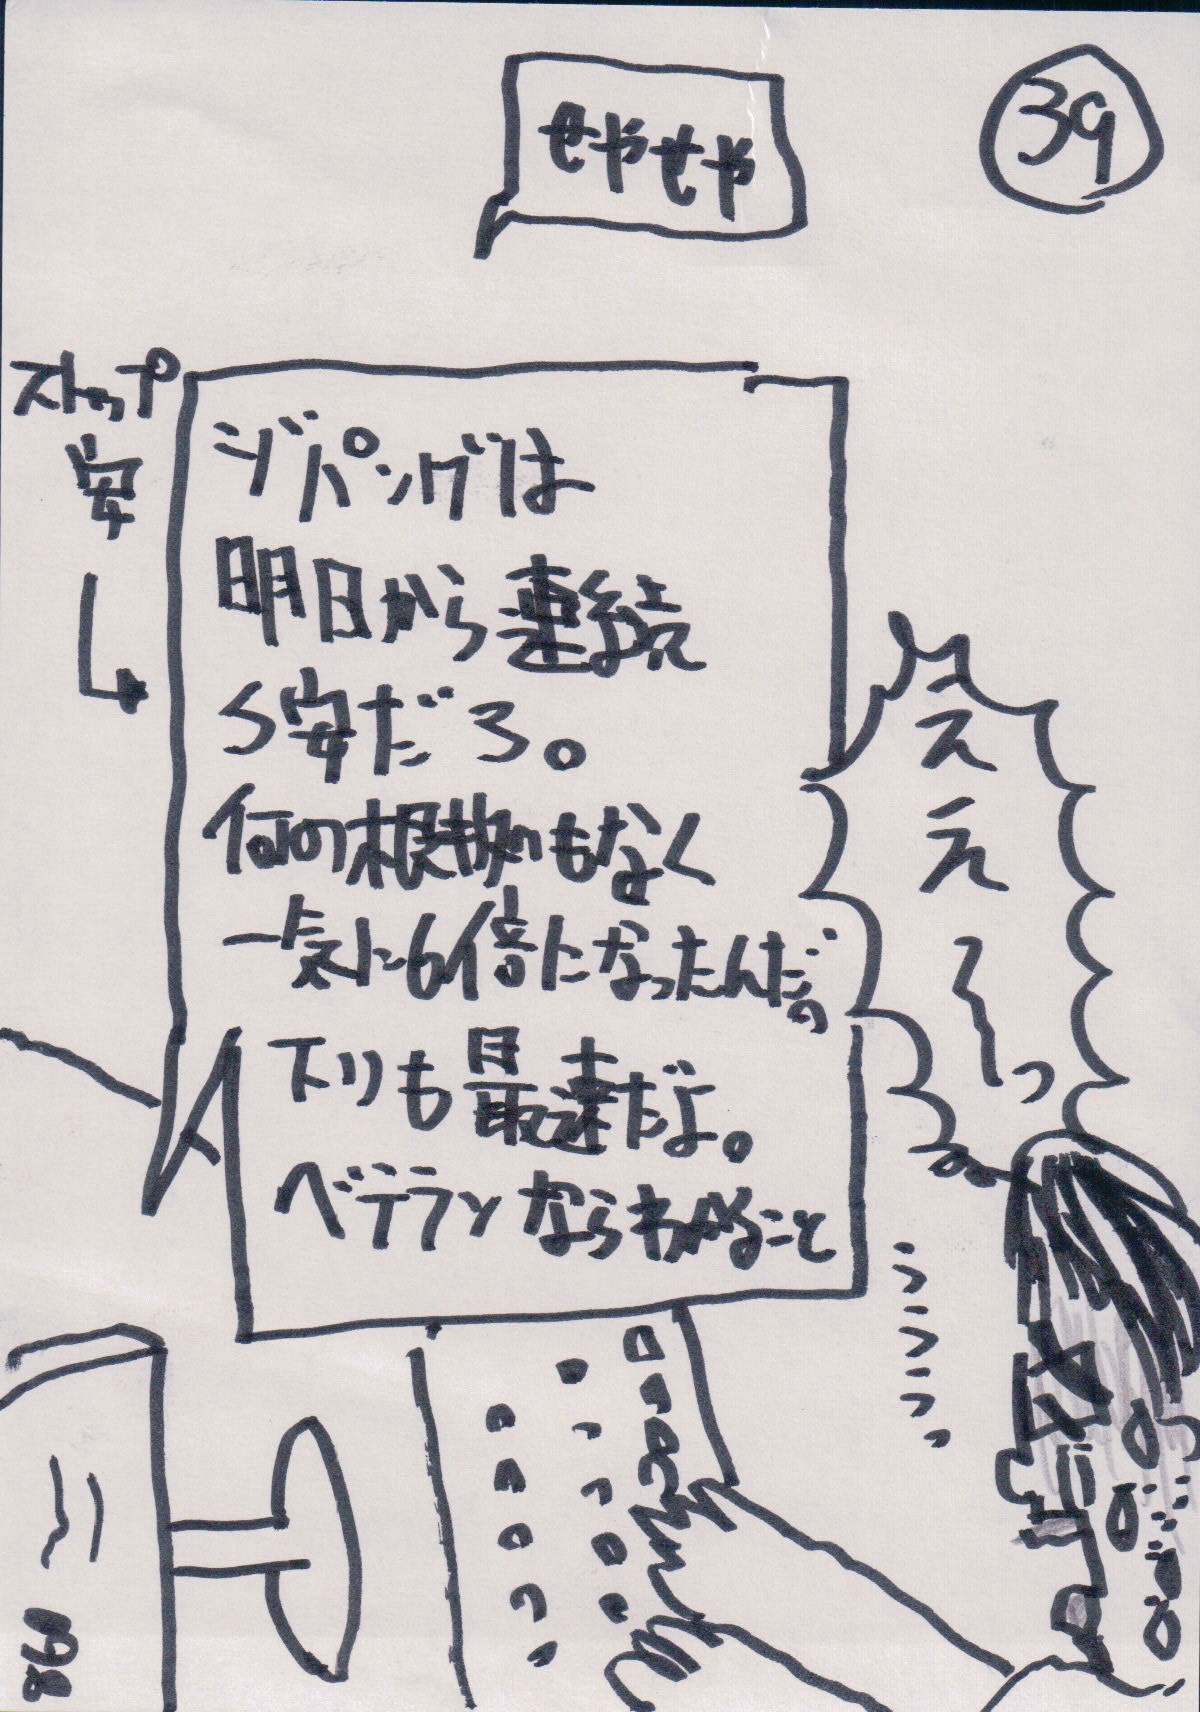 39
せやせや
ストップ
安
ジパングは
明日から連続
S安だろ。
何の根拠もなく
一気に6倍になったんだ。
下りも最速だよ。
ベテランならわかること
ええ〜っ